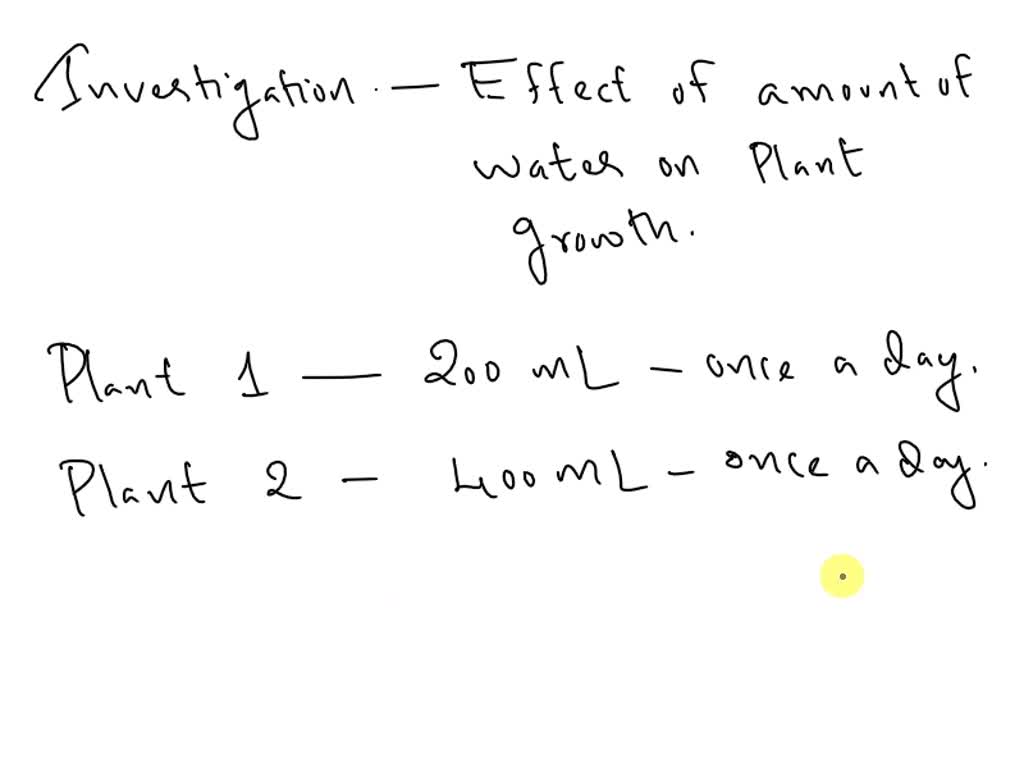 Investigation. — Effect of amount of
water on Plant
growth.
Plant 1 — 200 mL – once a day.
Plant 2 – 400 mL – once a day.